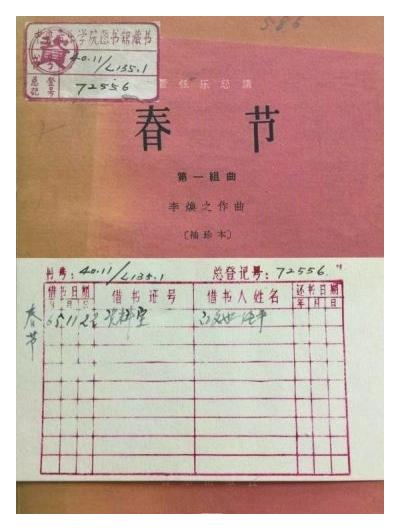 586
学院图书馆藏书
书号 40.11/L135.1
总登记号 72556
管弦乐总谱
春节
第一組曲
李煥之作曲
〔袖珍本〕
书号: 40.11/L135.1 总登记号: 72556
借书日期 借书证号 借书人姓名 还书日期
年月日 年月日
春节 65 11 22 资料室